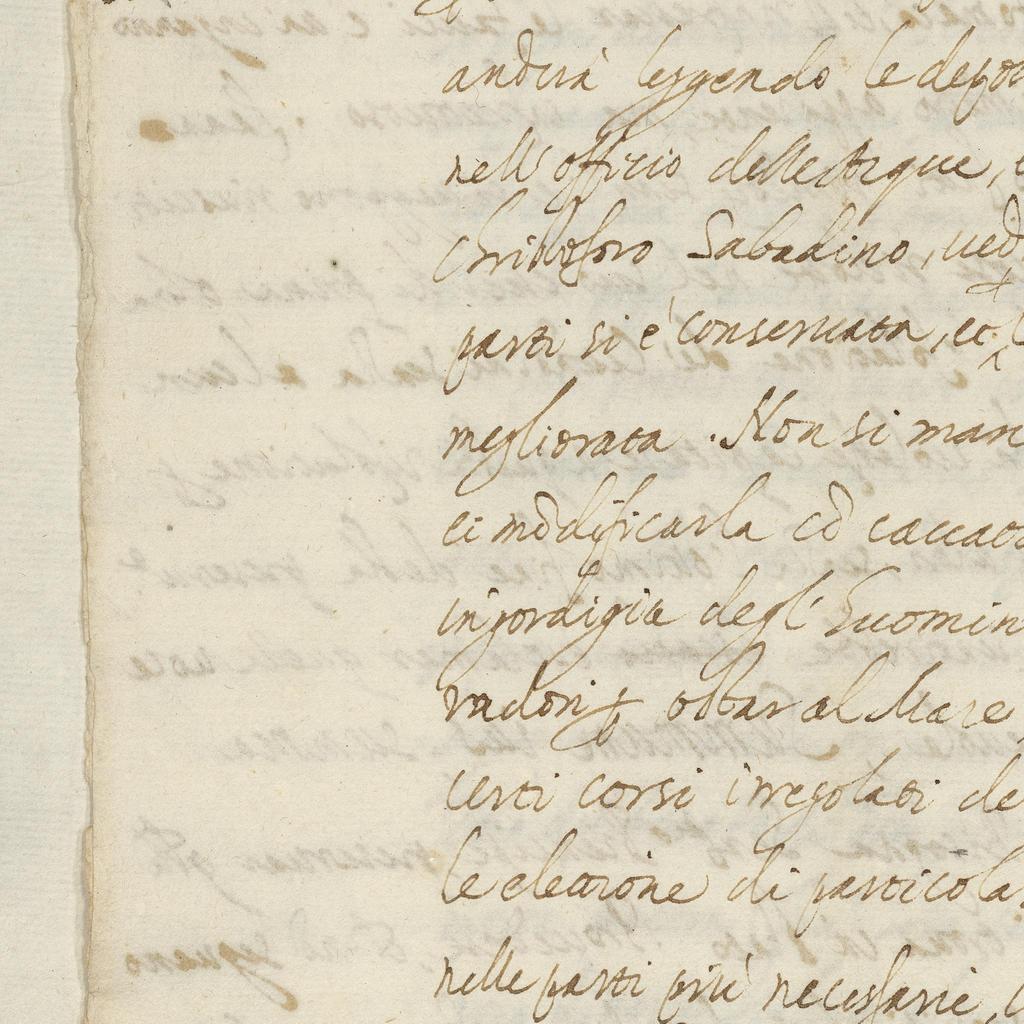 andrà leggendo le depo
nell'officio delle Acque,
Christoforo Sabadino, ued
parti si è conseruata, et
megliorata. Non si man
ei modificarla cō caccia
ingordigia degl'huomin
obstar al Mare
certi corsi irregolati de
le elettione di particola
nelle parti più necessarie,